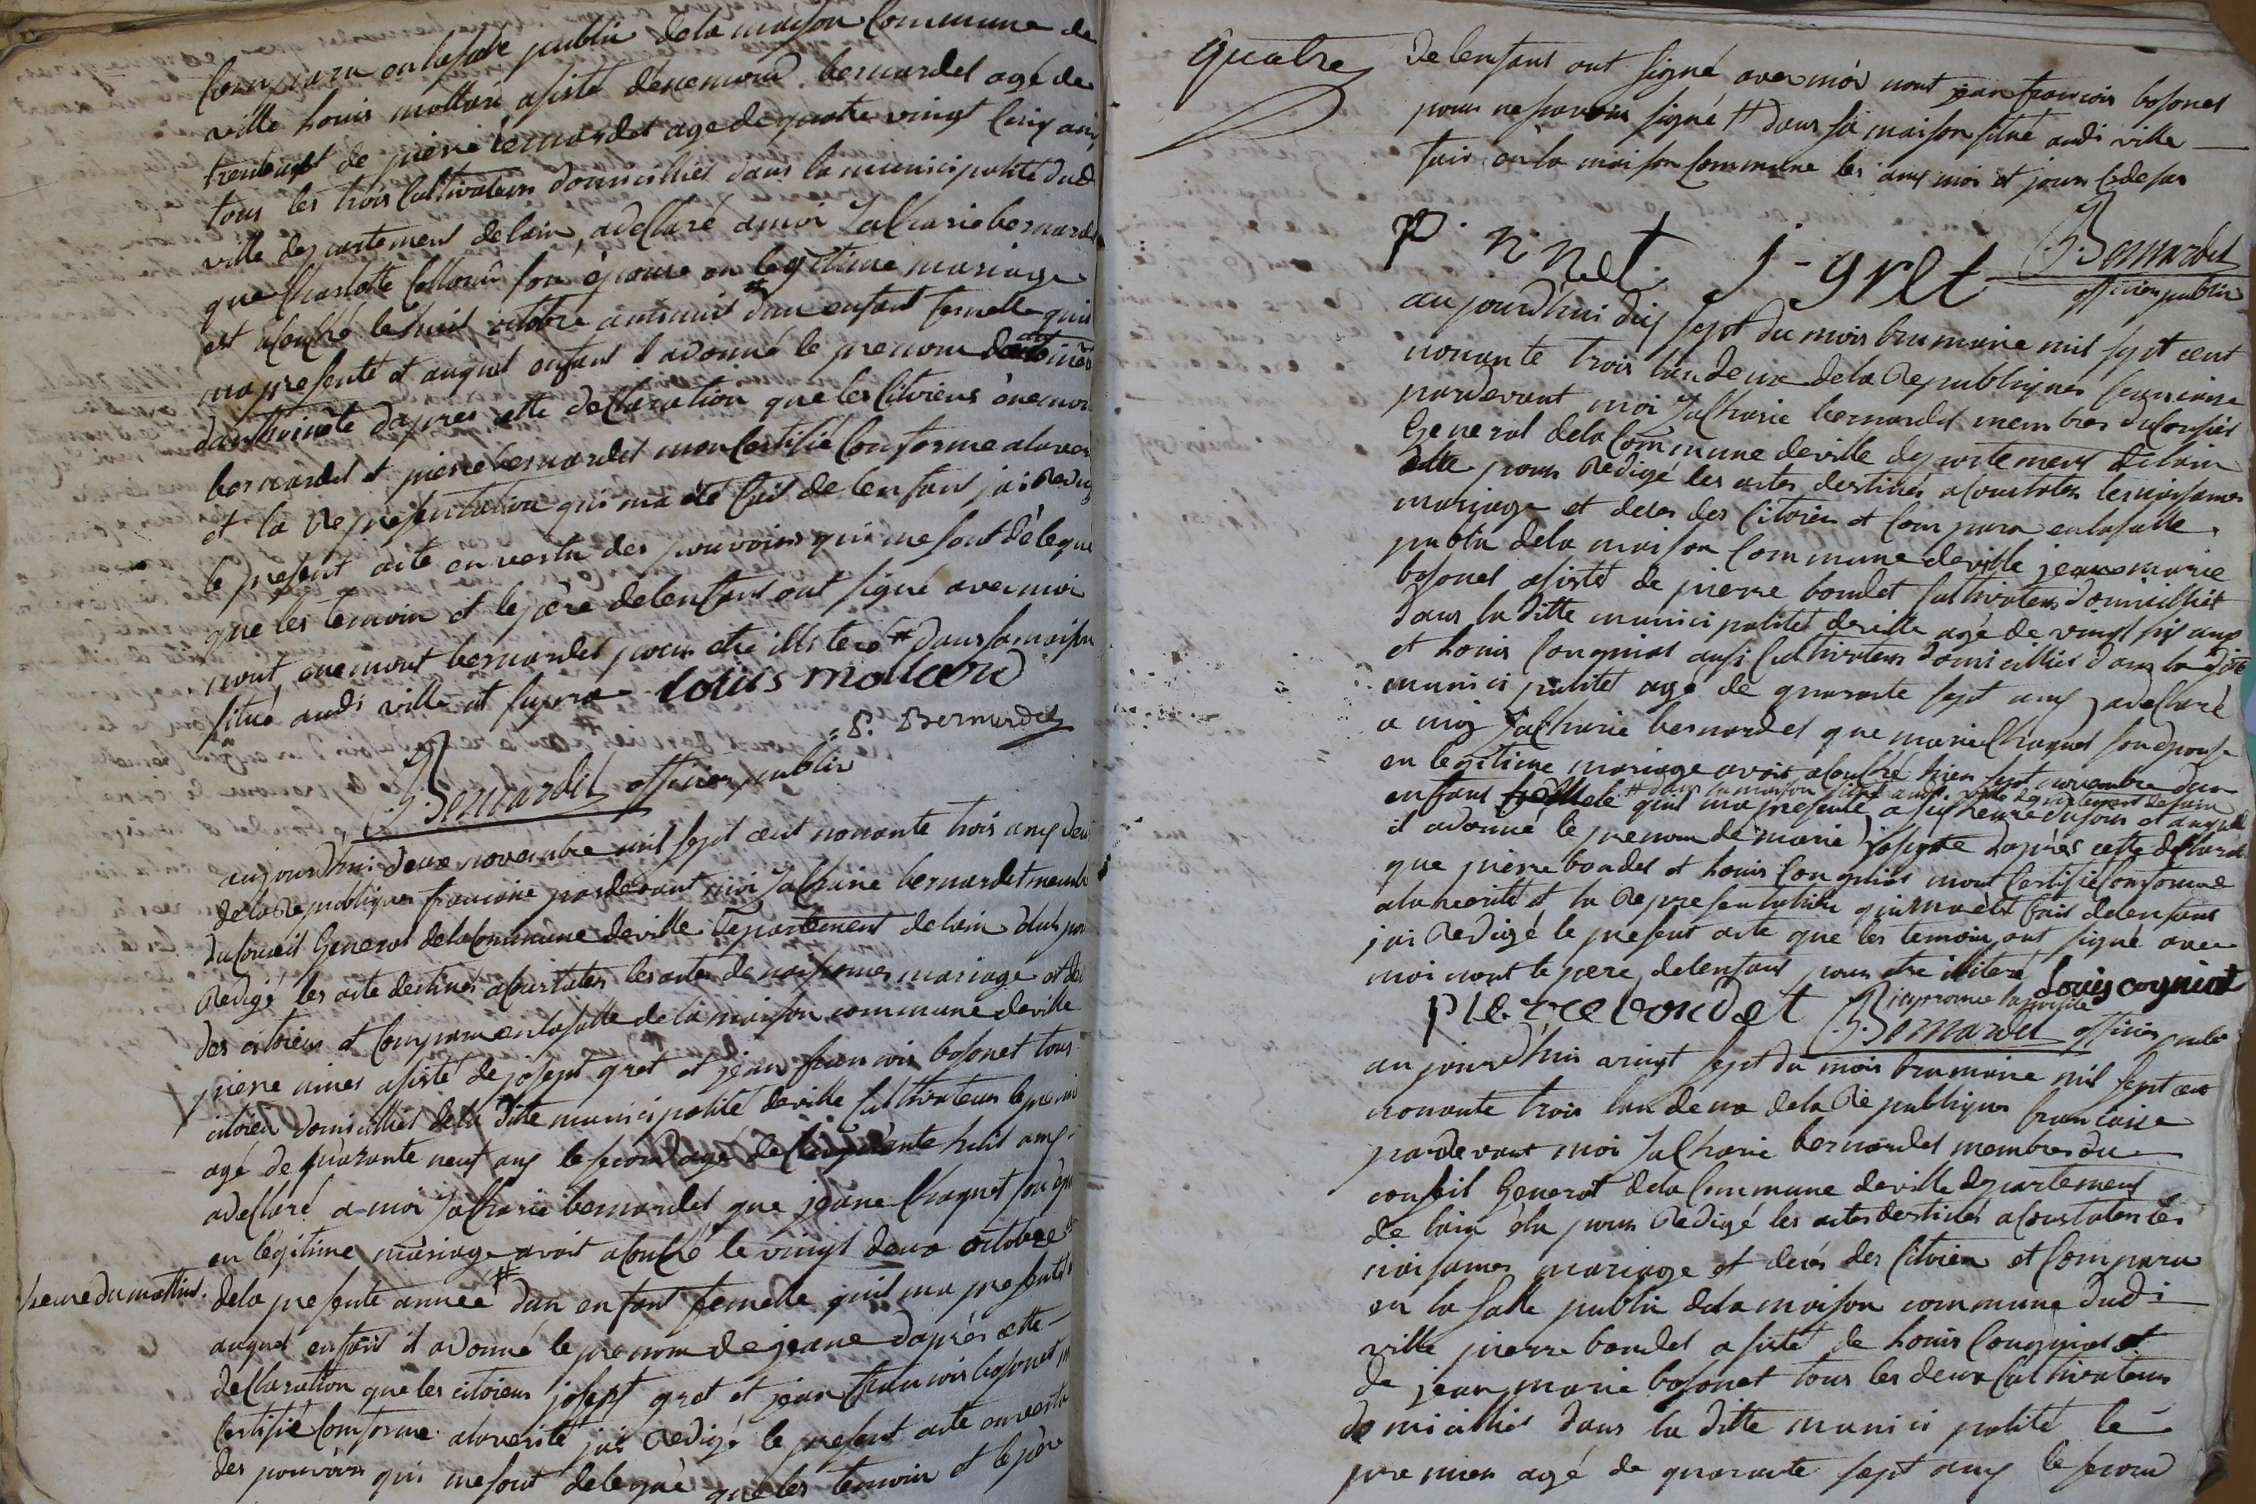 Comparu en la salle public dela maison Commune de
ville Louis mollard asisté dénemond bernardet agé de
trente et de pierre bernardet age de quatre vingt cinq ans
tous les trois Cultivateurs domicilliés dans la municipalité dud
ville departement delain, a déclaré a moi Jacharie bernardet
que Charlotte son épouse en legitime mariage
est acouché le huit octobre dun enfant femelle quil
ma presenté et auquel enfant il adonné le prenom
danthoinete dapres cette declaration que les Citoiens énemon
bernardet et pierre bernardet mon Certifié Conforme alaver
et la Representation qui ma été fait de lenfant jai Redig
le present acte en vertu des pouvoirs qui me sont délégué
que les temoin et le père delenfant ont signé avec moi
nont énemont bernardet pour etre illiteré # dans sa maison
situé audi ville et supra Louis mollard
P. Bernardet
J. Bernardet officier public
aujourdhui deux novembre mil sept cent nonante trois ans deux
dela Republique francaise pardevant moi Jacharie bernardet membre
du Conseil General dela Commune deville Departement delain élut pour
Redigé les acte destinés a Constater les actes de naissances mariage et dé
des citoiens et Comparu en la salle de la maison commune deville
pierre ninet asisté de joseph gret et jean francois bosonet tous
citoien domicilliés dela ditte municipalité deville Cultivateurs le premi
agé de quarante neuf ans le second agé de Cinquante huit ans
a declaré a moi Jacharie bernardet que jeane Chaquet son épou
en légitime mariage avoit acouché le vingt deux octobre
heure du mattin. dela presente année # dun enfant femelle quil ma presenté
auquel enfant il adonné le prenom de jeane dapres cette
declaration que les citoiens joseph gret et jean francois bosonet m
Certifié Conforme alaverité jai Redigé le present acte en vertu
des pouvoirs qui me sont delegué que les temoin et le père
quatre
De lenfant ont signé avec moi nont jean francois bosonet
pour ne savoir signé # dans sa maison situé audi ville
fait en la maison Commune les ans mois et jour Cidesus
P. ninet. j-gret J. Bernardet
officier public
aujourdhui dix sept du mois brumaire mil sept cent
nonante trois lan deux dela Republique francaise
pardevant moi Jacharie bernardet membres du Conseil
General dela Commune deville departement delain
pour Redigé les actes destinés a Constater les naissances
mariage et deces des Citoien et Comparu en la salle
public dela maison Commune deville jean marie
bosonet asisté de pierre boudet Cultivateur domicillié
dans la ditte municipalité deville agé de vingt six ans
et Louis Cougniat ausi Cultivateur domicillié dans la dite
municipalité agé de quarante sept ans, a declaré
a moi Jacharie bernardet que marie Chaquet son épouse
en legitime mariage avoit acouché hier sept novembre dun
enfant femele # quil ma presenté a six heure du soir et auquel
# dans sa maison situé audi ville departement delain
il adonné le prenom de marie josephte dapres cette declarat
que pierre boudet et Louis Cougniat mont Certifié Conforme
alaverité et la Representation qui ma été fait delenfant
jai Redigé le present acte que les temoin ont signé avec
moi nont le pere delenfant pour etre illiteré Louis cogniat
pierre boudet J. Bernardet officier public
aujourdhui avingt sept du mois brumaire mil sept cent
nonante trois lan deux dela Republique francaise
pardevant moi Jacharie bernardet membres du
conseil General dela Commune deville departement
de lain élu pour Redigé les actes destinés a Constater les
naisances mariage et decés des Citoien et Comparu
en la salle public dela maison commune dudi
ville pierre boudet asisté de Louis Cougniat et
de jean marie bosonet tous les deux Cultivateurs
domicilliés dans la ditte municipalité le
premier agé de quarante sept ans le second